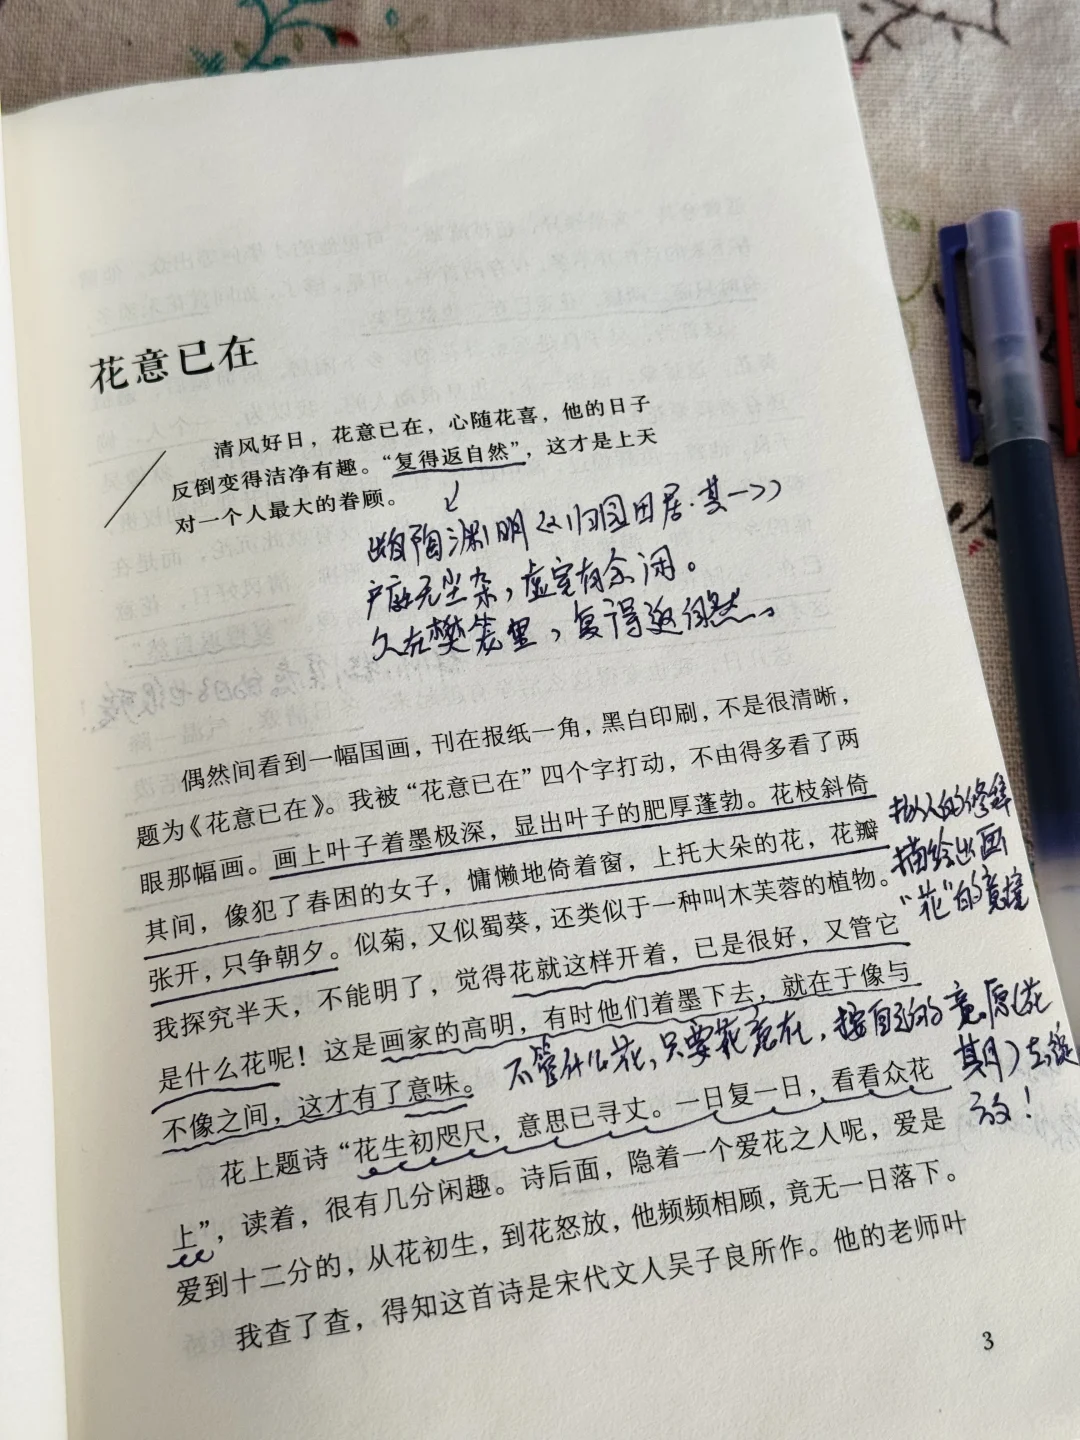 花意已在
清风好日，花意已在，心随花喜，他的日子
反倒变得洁净有趣。“复得返自然”，这才是上天
对一个人最大的眷顾。
出自陶渊明《归园田居·其一》
户庭无尘杂，虚室有余闲。
久在樊笼里，复得返自然。
偶然间看到一幅国画，刊在报纸一角，黑白印刷，不是很清晰，
题为《花意已在》。我被“花意已在”四个字打动，不由得多看了两
眼那幅画。画上叶子着墨极深，显出叶子的肥厚蓬勃。花枝斜倚
其间，像犯了春困的女子，慵懒地倚着窗，上托大朵的花，花瓣
张开，只争朝夕。似菊，又似蜀葵，还类似于一种叫木芙蓉的植物。
我探究半天，不能明了，觉得花就这样开着，已是很好，又管它
是什么花呢！这是画家的高明，有时他们着墨下去，就在于像与
不像之间，这才有了意味。
拟人的修辞
描绘出画
“花”的意境
不管什么花，只要花意在，按自己的意愿（花
期）去绽
放！
花上题诗“花生初咫尺，意思已寻丈。一日复一日，看看众花
上”，读着，很有几分闲趣。诗后面，隐着一个爱花之人呢，爱是
爱到十二分的，从花初生，到花怒放，他频频相顾，竟无一日落下。
我查了查，得知这首诗是宋代文人吴子良所作。他的老师叶
3